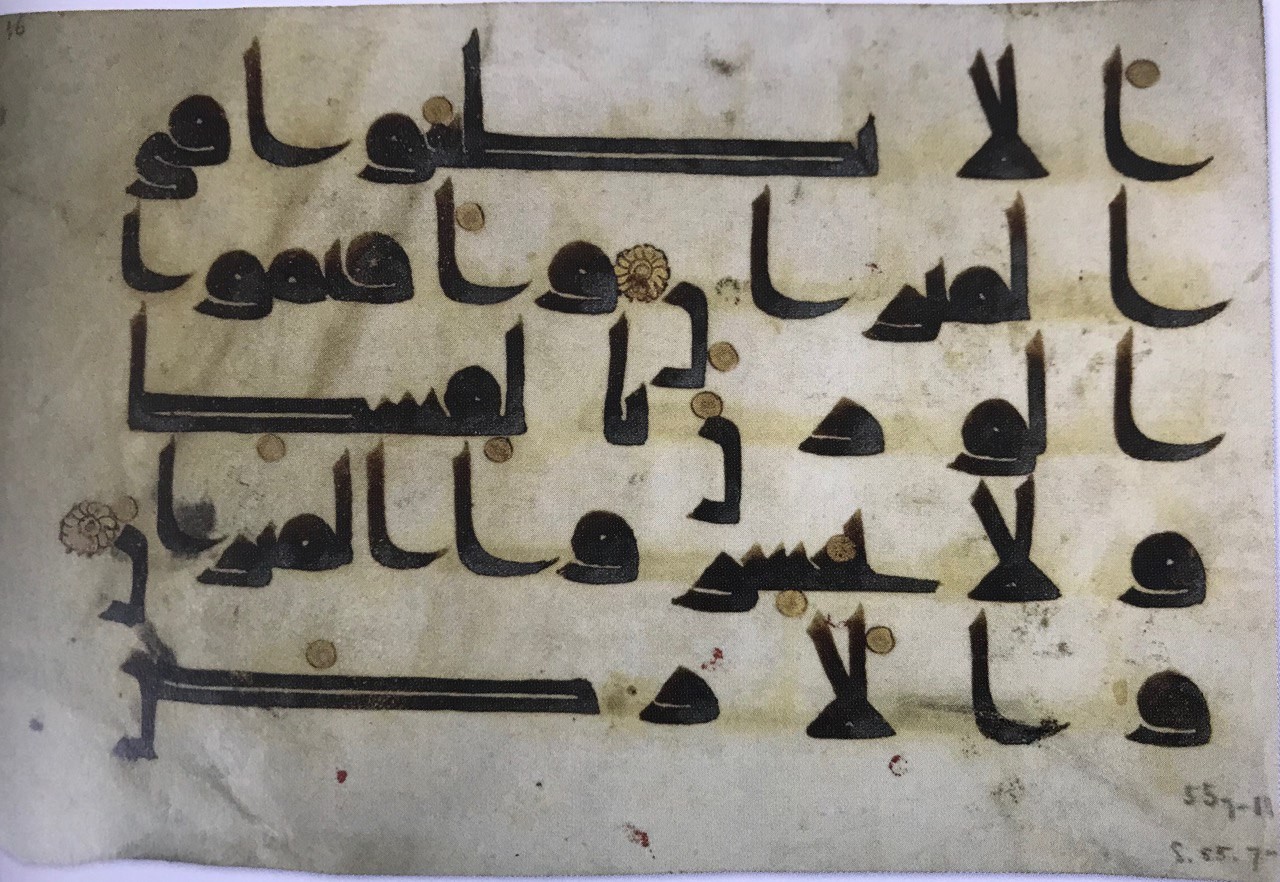 16
الا تطغوا في
الميزان واقيموا
الوزن بالقسط
ولا تخسروا الميزان
والارض
S. 55. 7-